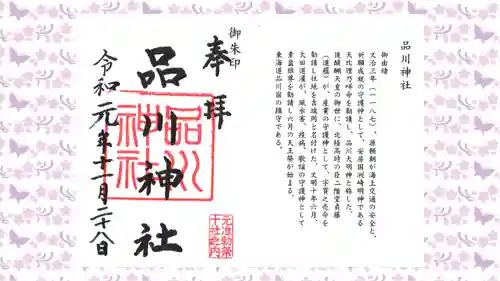 御朱印
奉拝
品川神社
品川神社
令和元年十一月二十八日
元准勅祭
十社之内
品川神社
御由緒
文治三年(一一八七)、源頼朝が海上交通の安全と、
祈願成就の守護神として、安房国洲崎明神である
天比理乃咩命を勧請し、品川大明神と称した。
後醍醐天皇の御世に、北條高時の臣二階堂貞藤
(道蘊)が、産業の守護神として、宇賀之売命を
勧請し社地を吉端岡と名付けた。文明十年六月、
太田道灌が、風水害、疫病、歌謡の守護神として
素盞雄尊を勧請し六月の天王祭が始まる。
東海道品川宿の鎮守である。